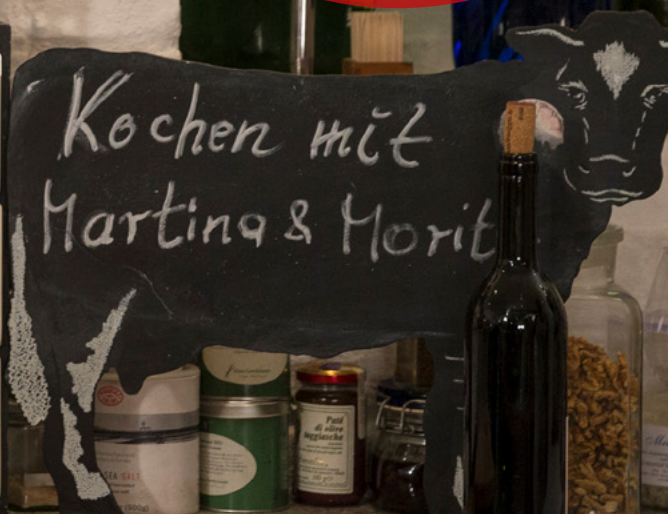 Kochen mit
Martina & Morit
Paté
di olive
taggiasche
SEA SALT